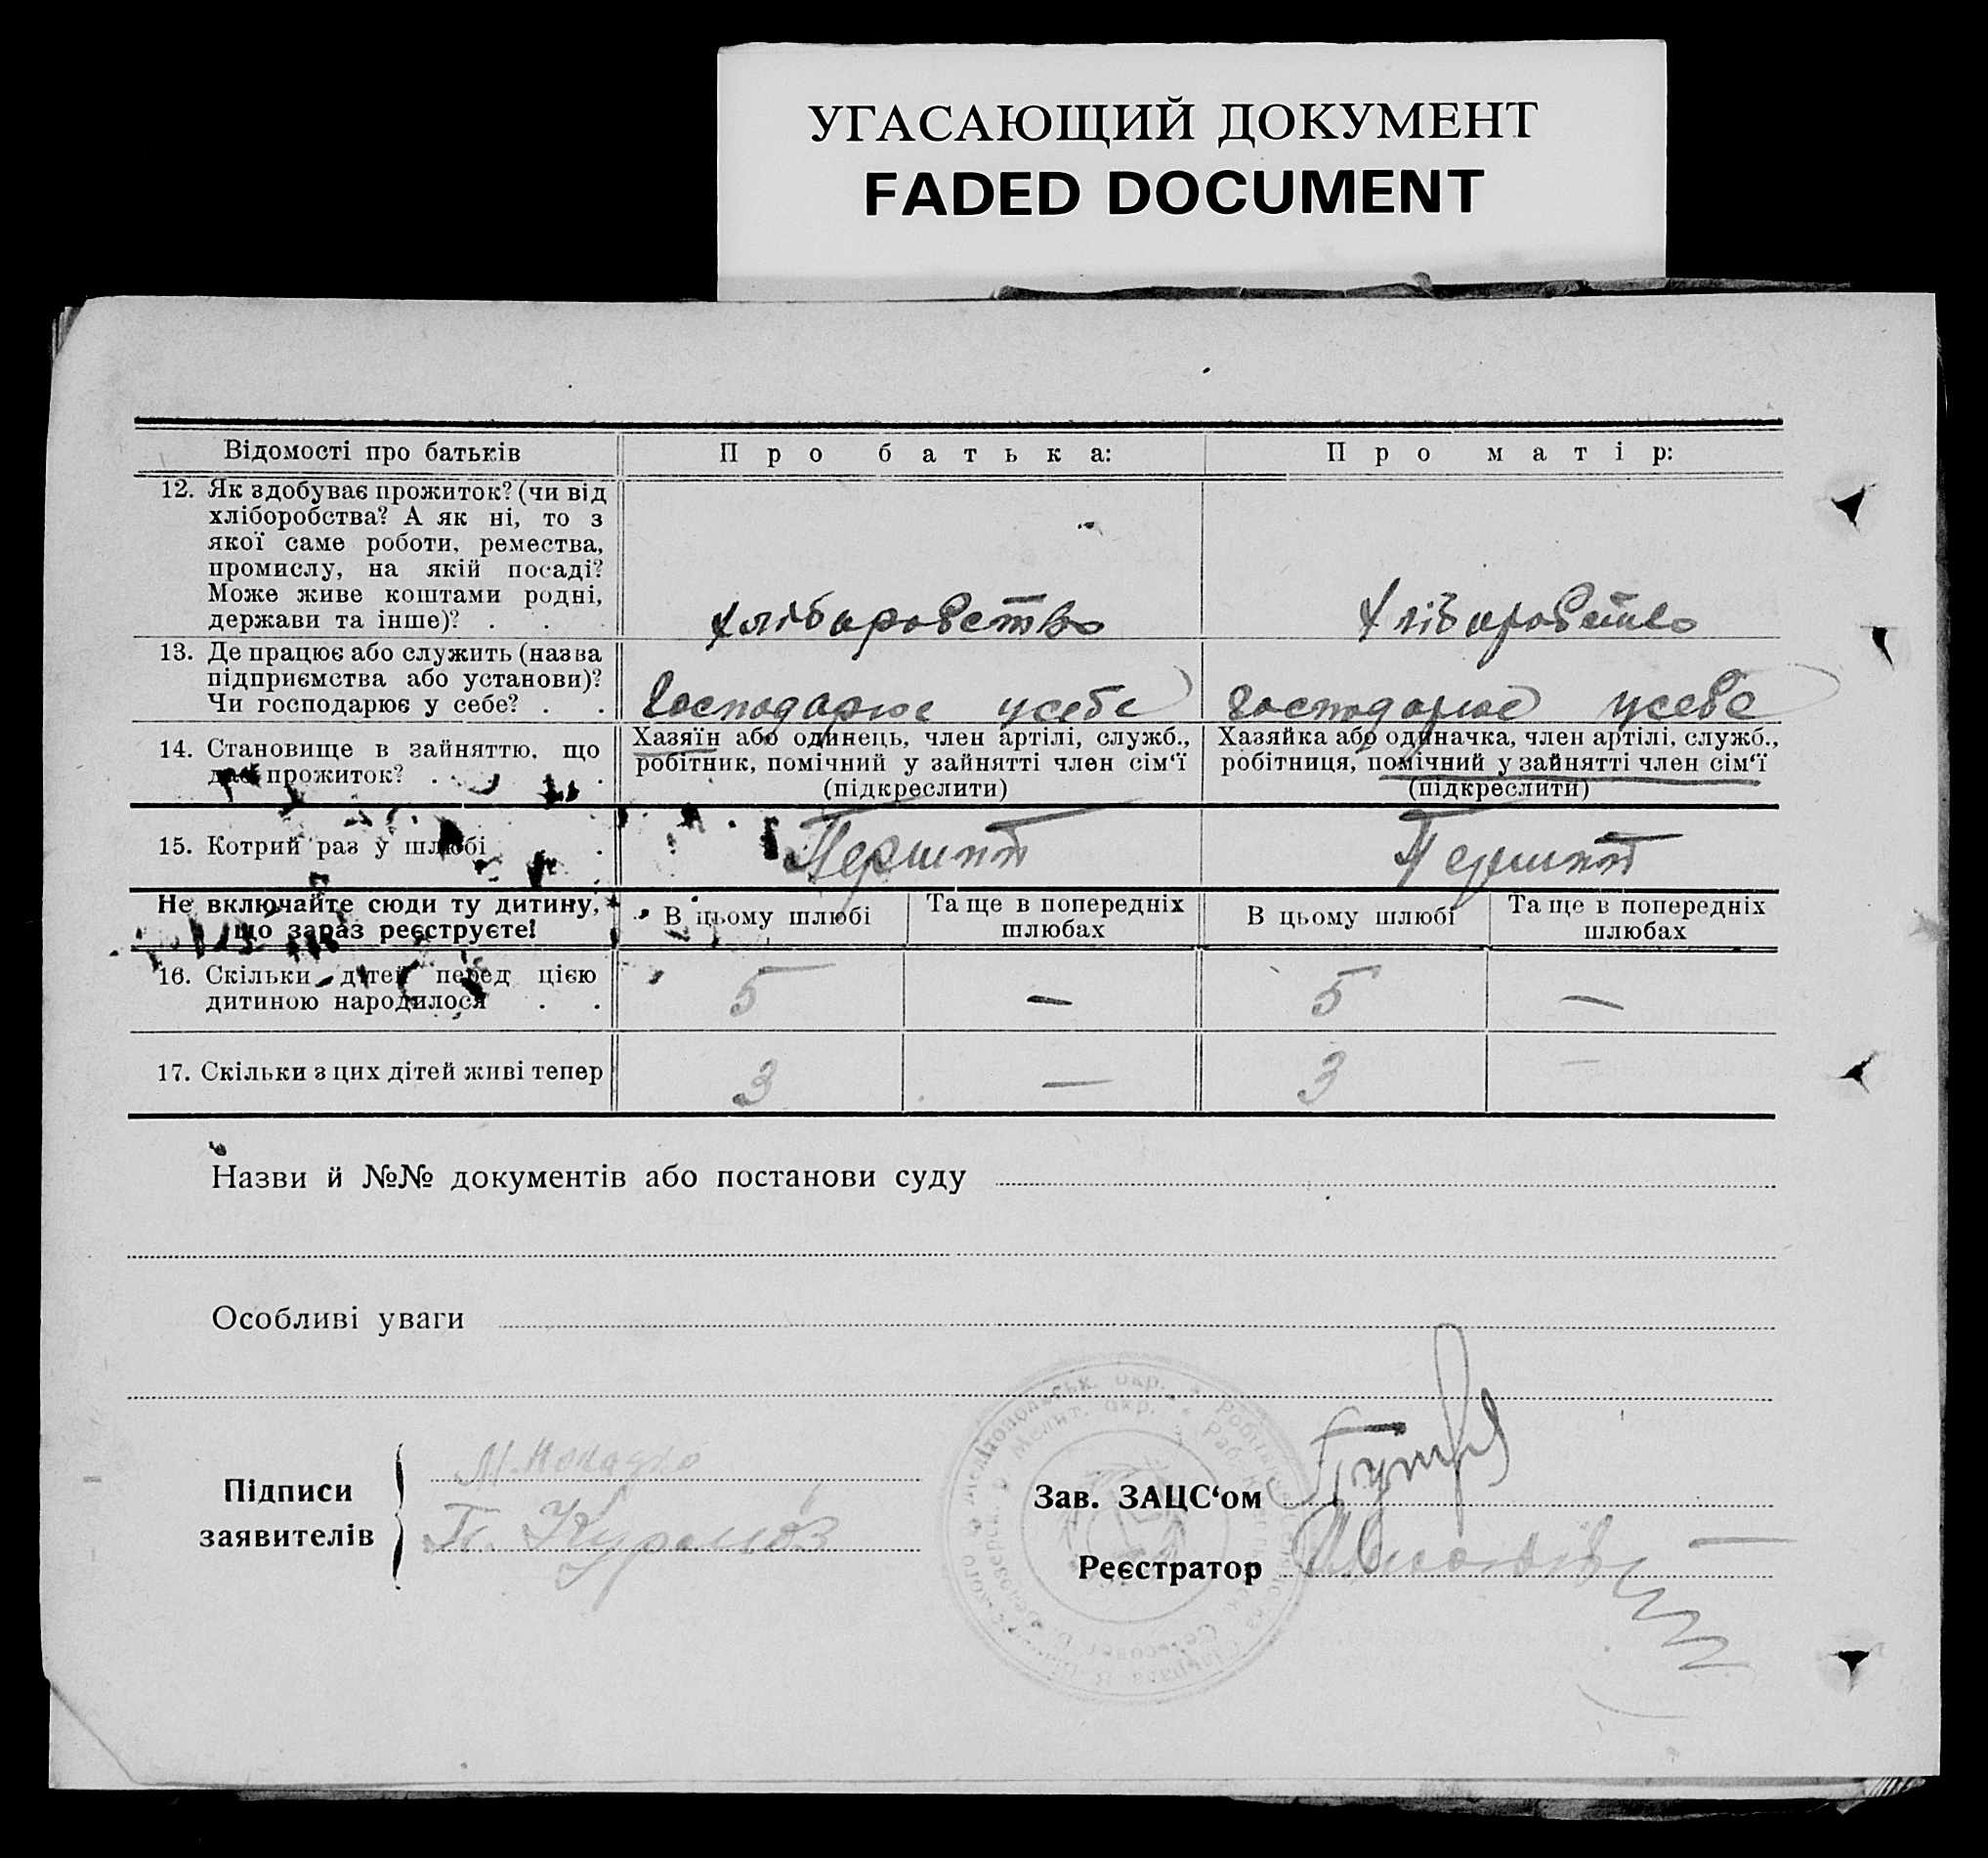 УГАСАЮЩИЙ ДОКУМЕНТ
FADED DOCUMENT
Відомості про батьків
Про батька:
Про матір:
12. Як здобуває прожиток? (чи від
хліборобства? А як ні, то з
якої саме роботи, ремества,
промислу, на якій посаді?
Може живе коштами родні,
держави та інше)? . .
хліборобство
хліборобство
13. Де працює або служить (назва
підприємства або установи)?
Чи господарює у себе? . .
господарює усебе
господарює усебе
14. Становище в зайняттю, що
дає прожиток? . . .
Хазяїн або одинець, член артілі, служб.,
робітник, помічний у зайнятті член сім‘ї
(підкреслити)
Хазяйка або одиначка, член артілі, служб.,
робітниця, помічний у зайнятті член сім‘ї
(підкреслити)
15. Котрий раз у шлюбі . .
Перший
Перший
Не включайте сюди ту дитину,
що зараз реєструєте!
В цьому шлюбі
Та ще в попередніх
шлюбах
В цьому шлюбі
Та ще в попередніх
шлюбах
16. Скільки дітей перед цією
дитиною народилося . .
5
—
5
—
17. Скільки з цих дітей живі тепер
3
—
3
—
Назви й №№ документів або постанови суду
Особливі уваги
Підписи
заявителів
П. Курамов
Зав. ЗАЦС‘ом
Реєстратор